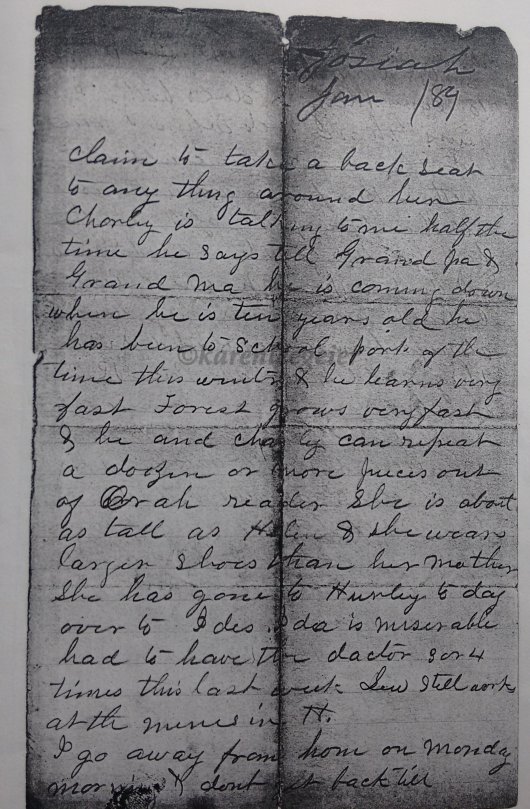 Josiah
Jan /89
claim to take a back seat
to any thing around her
Chorley is talking to me half the
time he says tell Grand pa &
Grand ma he is coming down
when he is ten years old he
has been to school part of the
time this winter & he learns very
fast Forest grows very fast
& he and charley can repeat
a doozin or more pieces out
of Orah reader She is about
as tall as Helen & she wears
larger shoes than her mother
She has gone to Hurley to day
over to Ides. Ida is miserable
had to have the doctor 3 or 4
times this last week Lew still works
at the mines in H.
I go away from home on Monday
morning & dont get back till
©karen